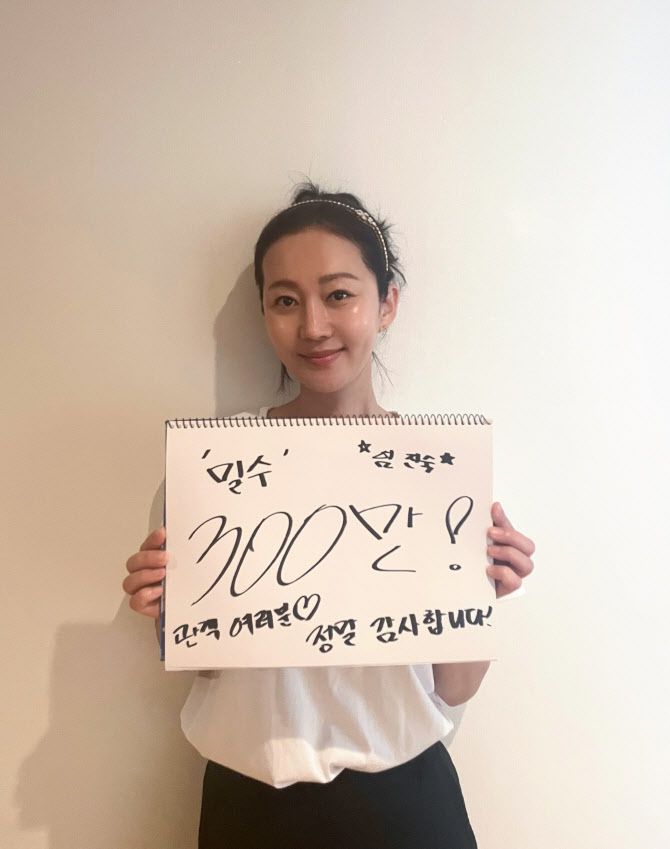 '밀수' ★엄진숙★
300만!
관객 여러분♡ 정말 감사합니다!